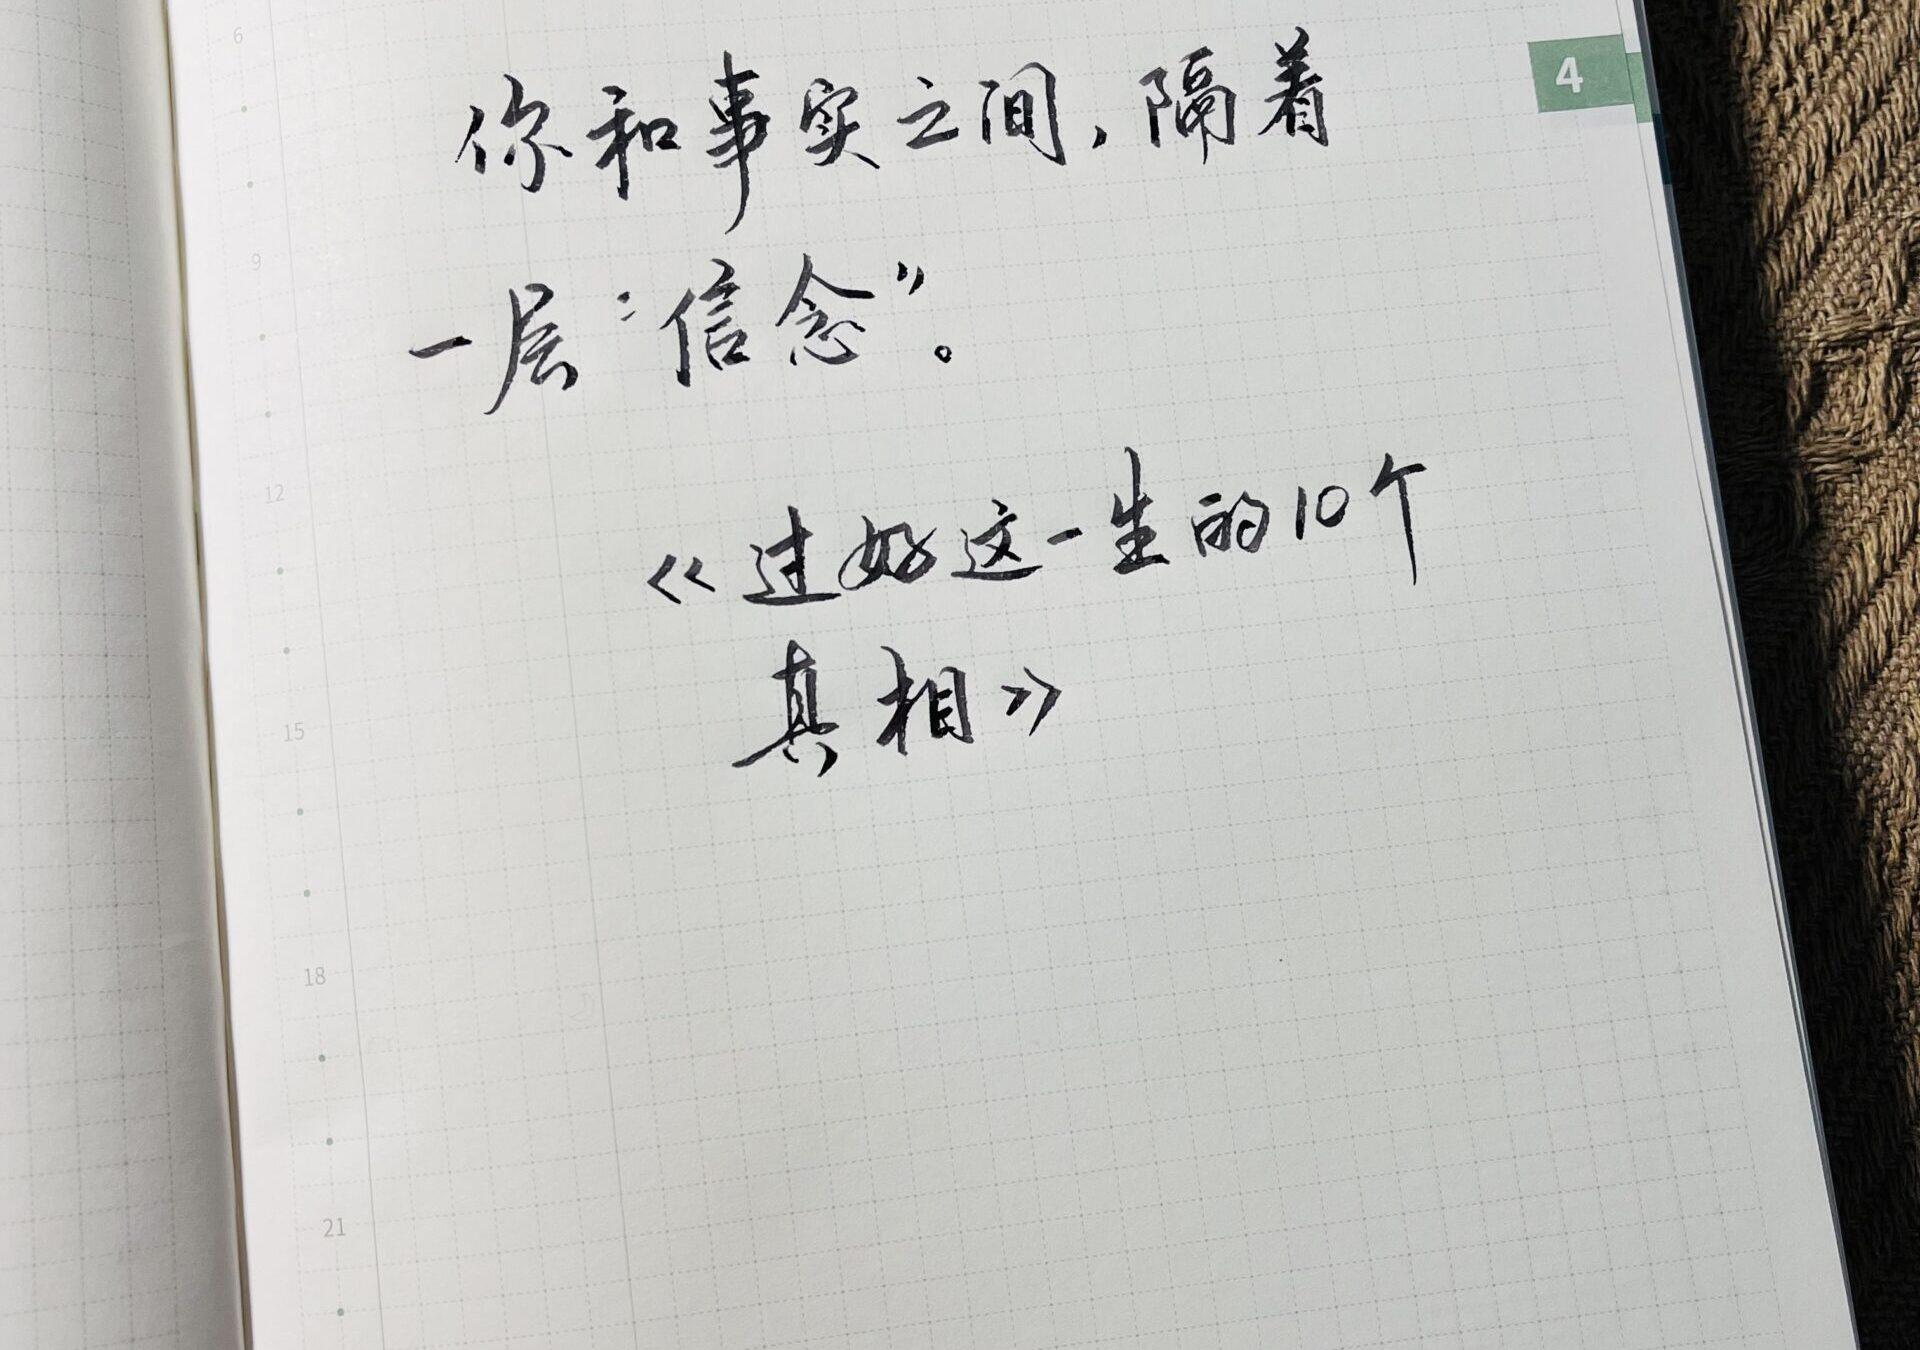 4
6
你和事实之间，隔着
9
一层“信念”。
12
《过好这一生的10个
真相》
15
18
21